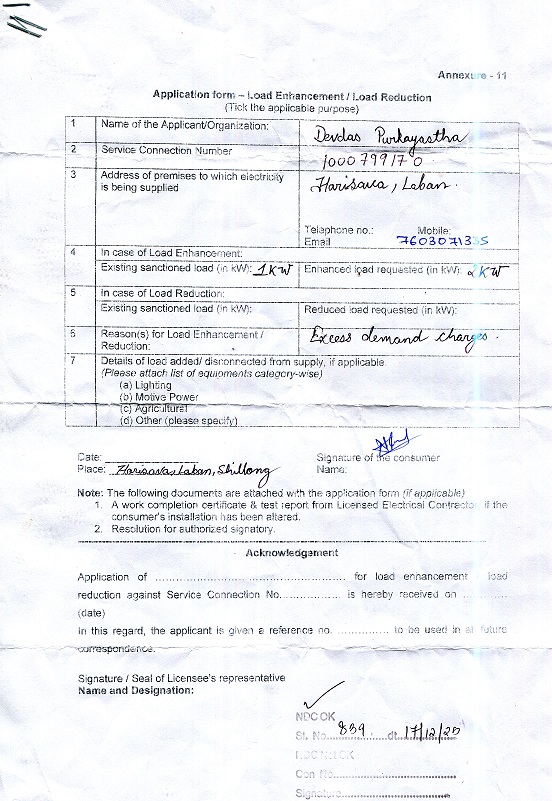 Annexure - 11
Application form – Load Enhancement / Load Reduction
(Tick the applicable purpose)
1 Name of the Applicant/Organization: Devdas Purkayastha
2 Service Connection Number 1000799170
3 Address of premises to which electricity Harisava, Laban.
is being supplied
Telephone no.: Mobile:
Email 7603071335
4 In case of Load Enhancement:
Existing sanctioned load (in kW): 1KW Enhanced load requested (in kW): 2KW
5 In case of Load Reduction:
Existing sanctioned load (in kW): Reduced load requested (in kW):
6 Reason(s) for Load Enhancement / Excess demand charges.
Reduction:
7 Details of load added/ disconnected from supply, if applicable
(Please attach list of equipments category-wise)
(a) Lighting
(b) Motive Power
(c) Agricultural
(d) Other (please specify)
Date: Signature of the consumer
Place: Harisava, Laban, Shillong Name:
Note: The following documents are attached with the application form (if applicable)
1. A work completion certificate & test report from Licensed Electrical Contractor if the
consumer's installation has been altered.
2. Resolution for authorized signatory.
Acknowledgement
Application of .................................................. for load enhancement load
reduction against Service Connection No................. is hereby received on ............
(date)
In this regard, the applicant is given a reference no. .............. to be used in all future
correspondence.
Signature / Seal of Licensee's representative
Name and Designation:
NDC OK
Sl. No. 839 dt. 17/12/20
NDC Not OK
Con No.
Signature